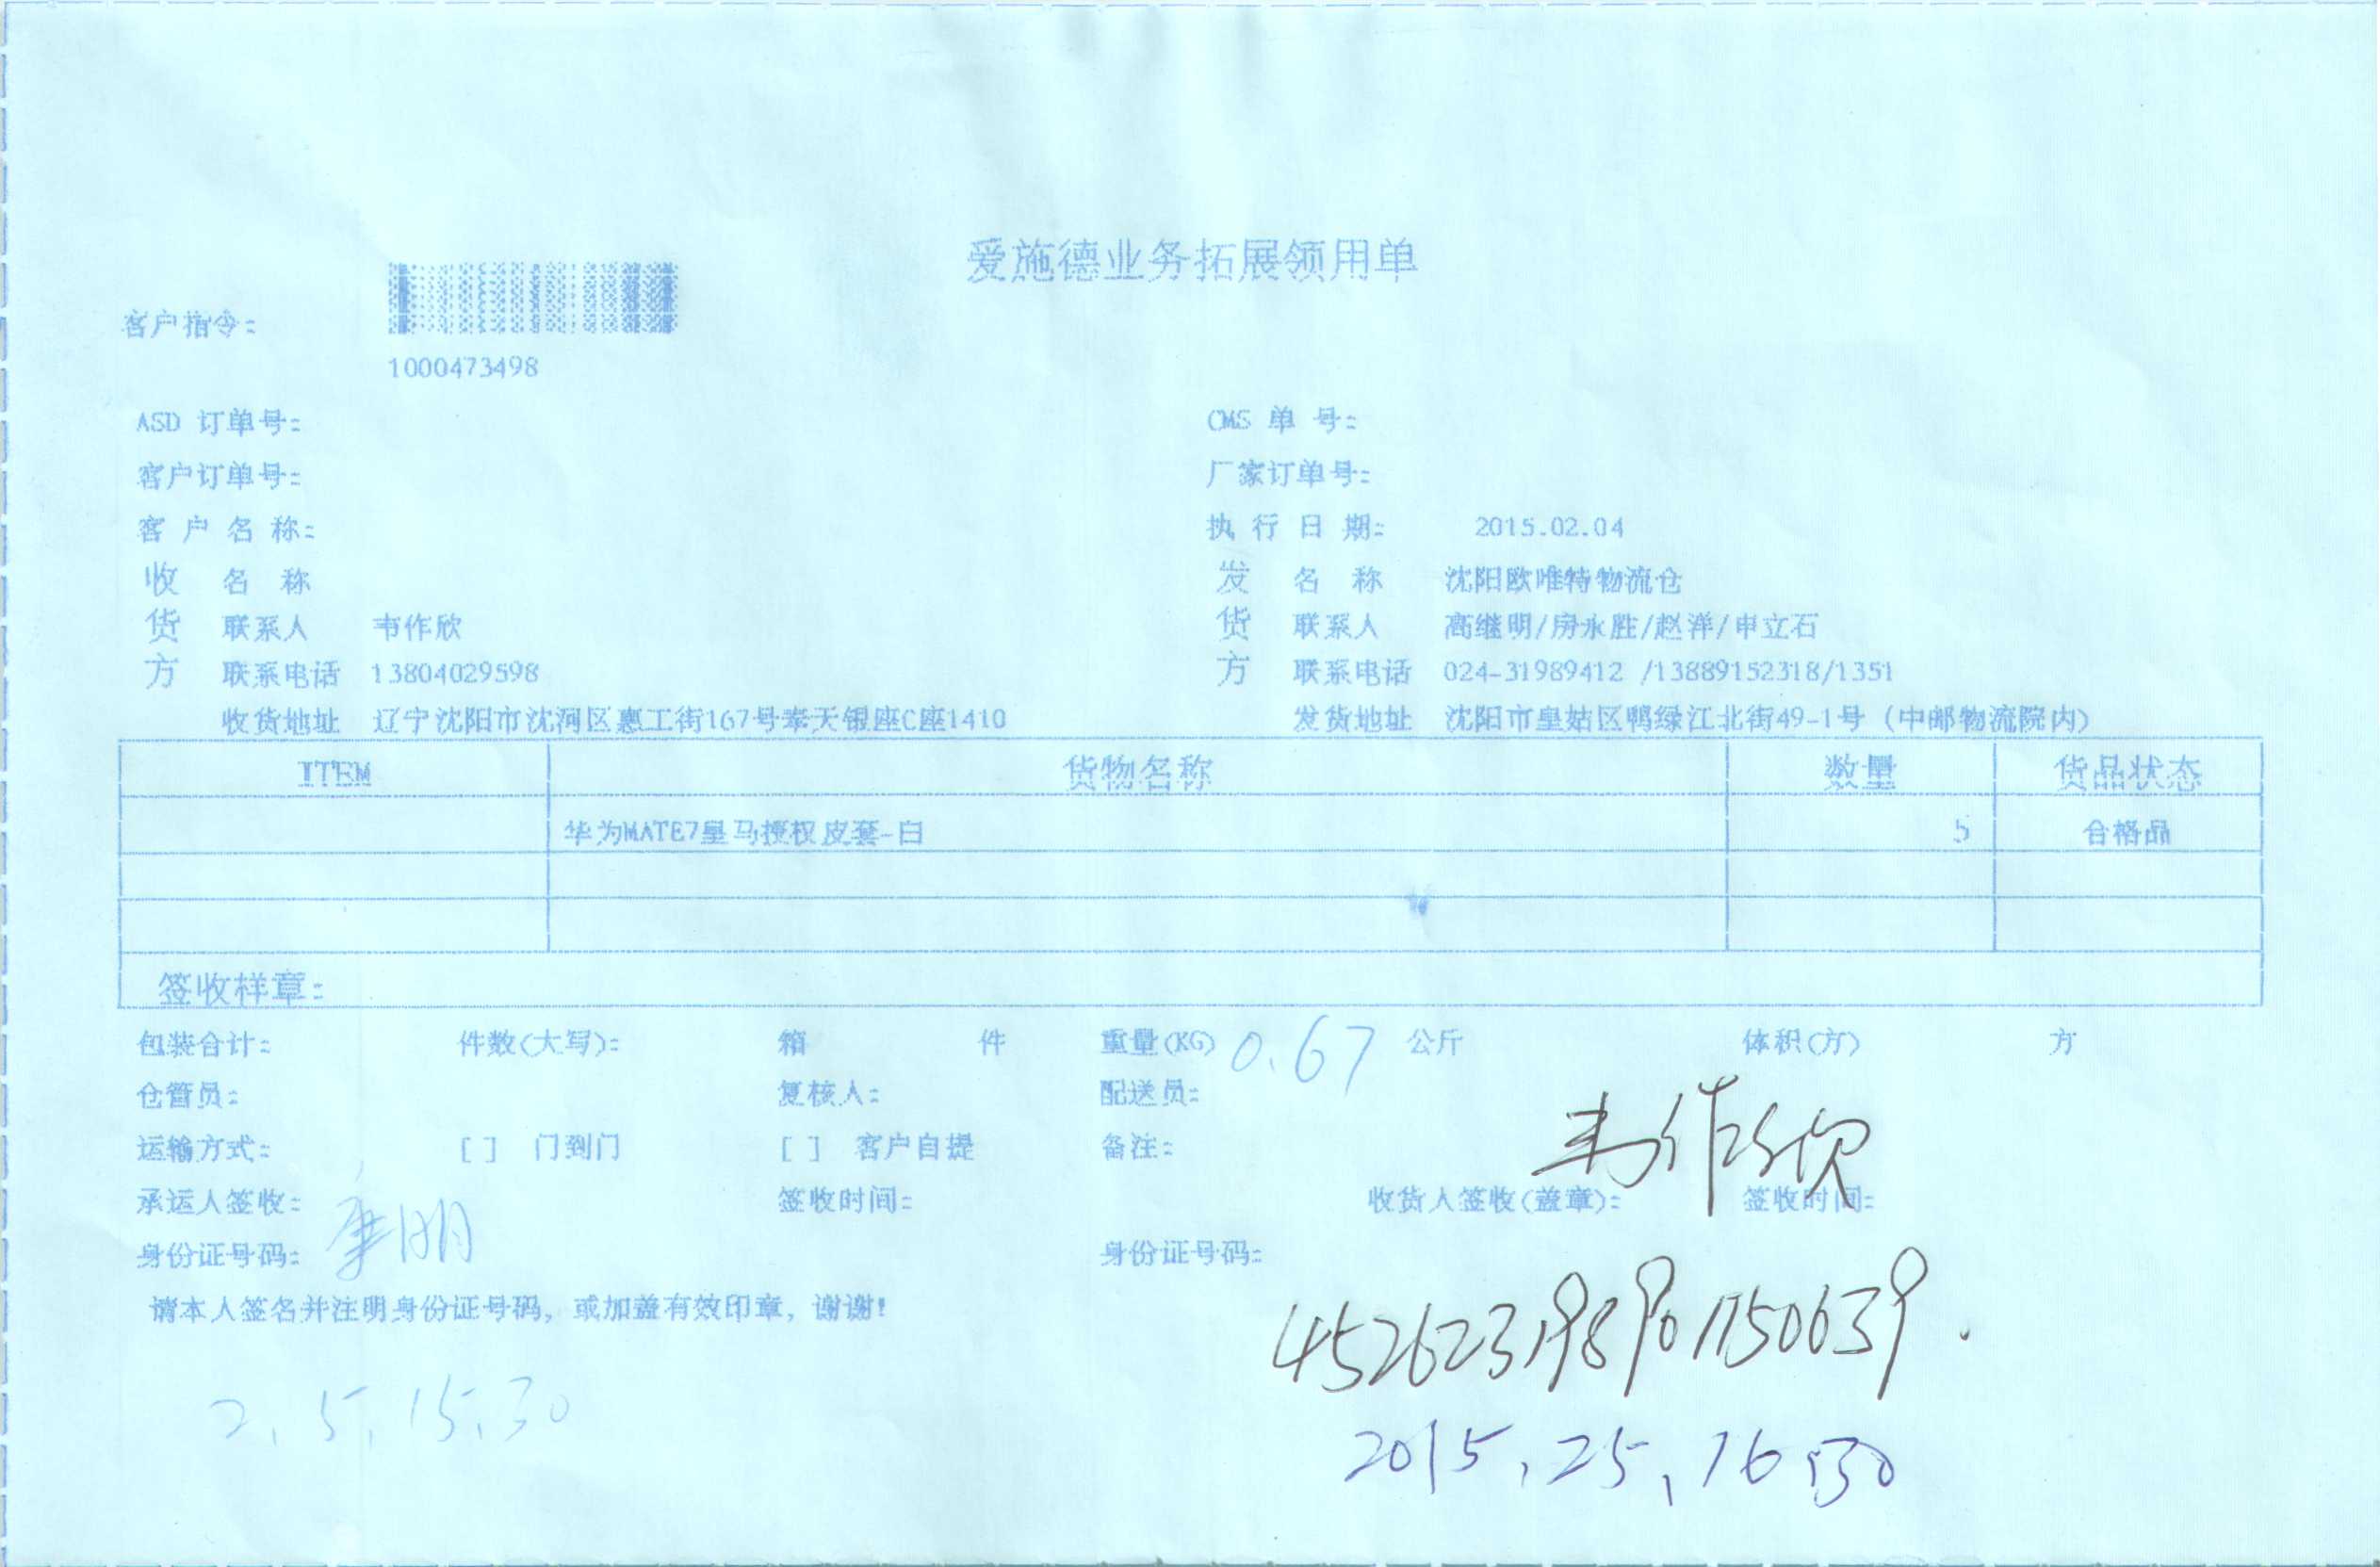 爱施德业务拓展领用单
客户指令:
1000473498
ASD 订单号: CMS 单 号:
客户订单号: 厂家订单号:
客 户 名 称: 执 行 日 期: 2015.02.04
收 名 称 发 名 称 沈阳欧唯特物流仓
货 联系人 韦作欣 货 联系人 高继明/房永胜/赵洋/申立石
方 联系电话 13804029598 方 联系电话 024-31989412 /13889152318/1351
收货地址 辽宁沈阳市沈河区惠工街167号奉天银座C座1410 发货地址 沈阳市皇姑区鸭绿江北街49-1号 (中邮物流院内)
ITEM 货物名称 数量 货品状态
华为MATE7皇马授权皮套-白 5 合格品
签收样章:
包装合计: 件数(大写): 箱 件 重量(KG) 0.67 公斤 体积(方) 方
仓管员: 复核人: 配送员:
运输方式: [ ] 门到门 [ ] 客户自提 备注:
韦作欣
承运人签收: 签收时间: 收货人签收(盖章): 签收时间:
身份证号码: 身份证号码:
请本人签名并注明身份证号码, 或加盖有效印章, 谢谢!
2.5.15.30
2015.25.16:30